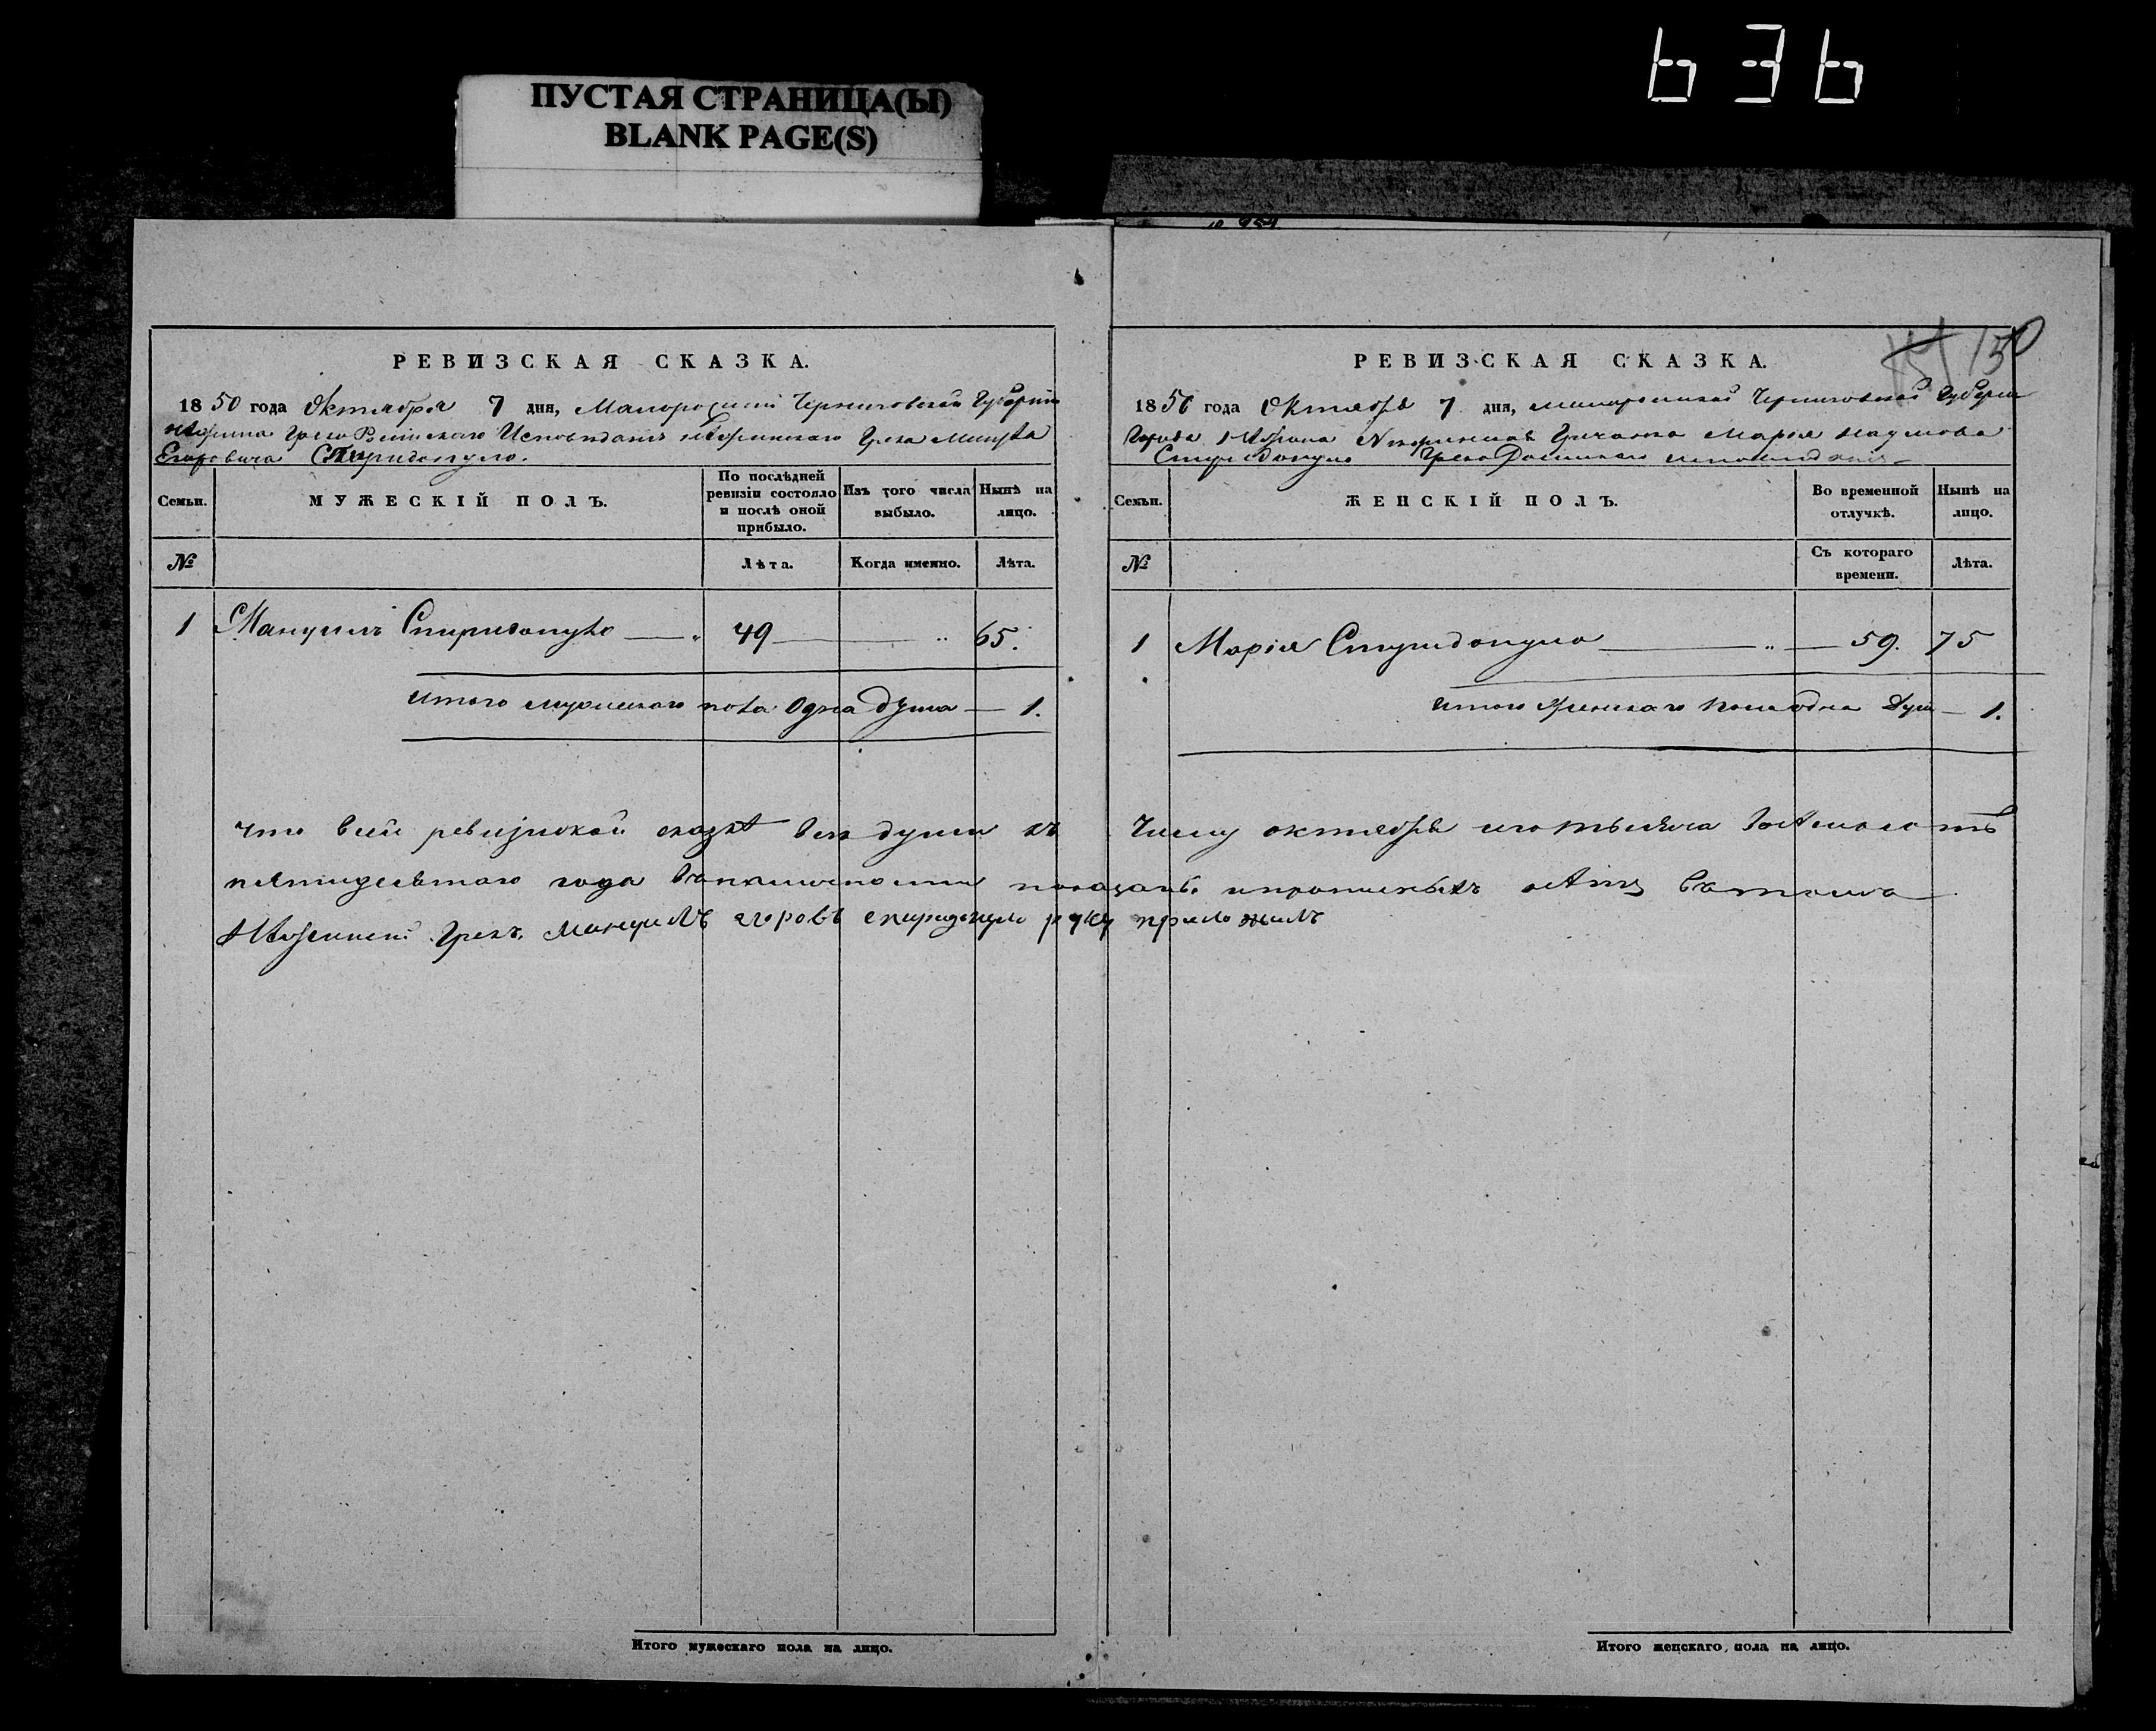 636
ПУСТАЯ СТРАНИЦА(Ы)
BLANK PAGE(S)
РЕВИЗСКАЯ СКАЗКА.
1850 года Октября 7 дня, Малоросiйской Черниговской Губернiи
Нѣжина Греко Россiйского Исповѣданiя Нѣжинского Грека Мануила
Егоровича Спиридопуло.
Семьи.
МУЖЕСКІЙ ПОЛЪ.
По послѣдней ревизіи состояло и послѣ оной прибыло.
Изъ того числа выбыло.
Нынѣ на лицо.
№
Лѣта.
Когда именно.
Лѣта.
1 Мануилъ Спиридопуло — 49 — 65.
Итого мужескаго пола Одна душа — 1.
Итого мужескаго пола на лицо.
150
РЕВИЗСКАЯ СКАЗКА.
1850 года Октября 7 дня, Черниговской Губернiи
Города Нѣжина Гречанка Марiя Наумова
Спиридопуло Греко Россiйскаго исповѣданiя
Семьи.
ЖЕНСКІЙ ПОЛЪ.
Во временной отлучкѣ.
Нынѣ на лицо.
№
Съ котораго времени.
Лѣта.
1 Марiя Спиридопуло — 59. 75
Итого женскаго пола одна душа — 1.
Что в сей ревизской сказкѣ всѣ души къ числу октября
пятидесятаго года в показаны
Нѣжинскiй Грекъ Мануилъ Егоровъ Спиридопуло руку приложилъ
Итого женскаго пола на лицо.